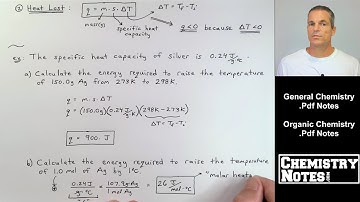 ③ Heat Lost: q = m·s·ΔT
ΔT = Tf - Ti
mass(g) specific heat capacity
q<0 because ΔT<0
Ex: The specific heat capacity of silver is 0.24 J/g·°C
a) Calculate the energy required to raise the temperature
of 150.0g Ag from 273K to 298K.
q = m·s·ΔT
q = (150.0g)(0.24 J/g·K)(298K - 273K)
ΔT = Tf - Ti
q = 900. J
b) Calculate the energy required to raise the temperature
of 1.0 mol of Ag by 1°C.
0.24 J/g·°C | 107.9g Ag/1 mol Ag = 26 J/mol·°C
"molar heat
General Chemistry
.Pdf Notes
Organic Chemistry
.Pdf Notes
CHEMISTRY
NOTES